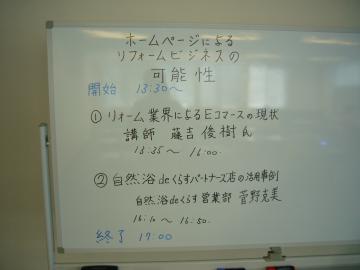 ホームページによる
リフォームビジネスの
可能性
開始 13:30〜
① リォーム業界によるEコマースの現状
講師 藤吉俊樹氏
13:35〜 16:00
② 自然浴deくらすパートナーズ店の活用事例
自然浴deくらす営業部 菅野克美
16:10〜 16:50.
終了 17:00